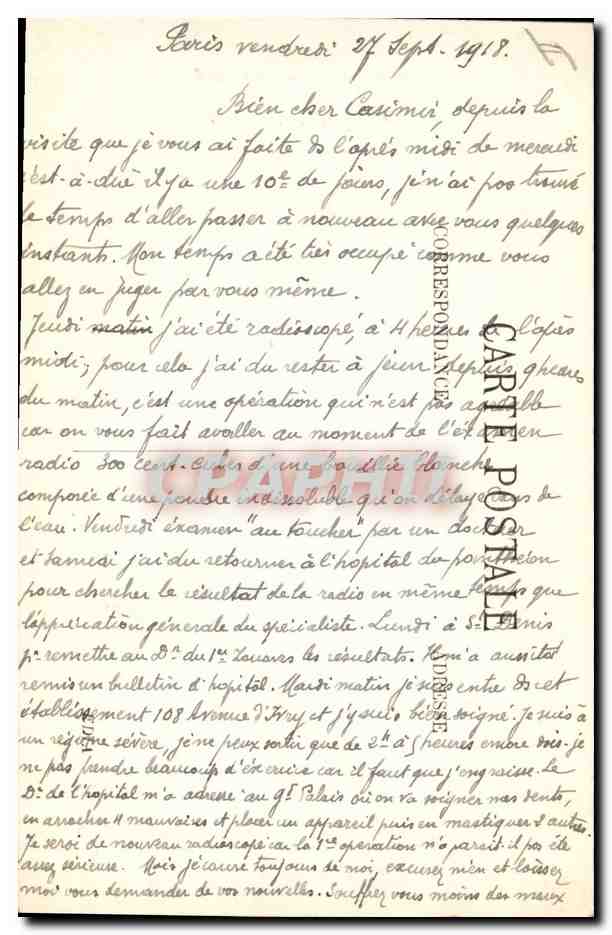 Paris vendredi 27 Sept. 1918.
Bien cher Casimir, depuis la
visite que je vous ai faite ds l'après midi de mercredi
c'est-à-dire il y a une 10e de jours, je n'ai pas trouvé
le temps d'aller passer à nouveau avec vous quelques
instants. Mon temps a été très occupé comme vous
allez en juger par vous même.
Jeudi matin j'ai été radioscopé, à 4 heures de l'après
midi; pour cela j'ai du rester à jeun depuis 9 heures
du matin, c'est une opération qui n'est pas agréable
car on vous fait avaller au moment de l'éxamen
radio 300 cent. cubes d'une bouillie blanche
composée d'une poudre indissoluble qu'on délaye dans de
l'eau. Vendredi éxamen "au toucher" par un docteur
et Samedi j'ai du retourner à l'hopital du pantheon
pour chercher le résultat de la radio en même temps que
l'appréciation générale du spécialiste. Lundi à St Denis
pr remettre au Dr du 1er Zouaves les résultats. Il m'a aussitot
remis un bulletin d'hopital. Mardi matin je suis entré ds cet
établissement 108 Avenue d'Ivry et j'y suis bien soigné. Je suis à
un régime sévère, je ne peux sortir que de 2h à 5 heures encore dois-je
ne pas prendre beaucoup d'éxercice car il faut que j'engraisse. Le
Dr de l'hopital m'a adressé au gd Palais où on va soigner mes dents,
en arracher 4 mauvaises et placer un appareil puis en mastiquer 2 autres.
Je serai de nouveau radioscopé car la 1re opération n'a parait-il pas été
assez sérieuse. Mais je cause toujours de moi, excusez m'en et laissez
moi vous demander de vos nouvelles. Souffrez vous moins des maux
CARTE POSTALE
CORRESPONDANCE
ADRESSE
CPAPHIL